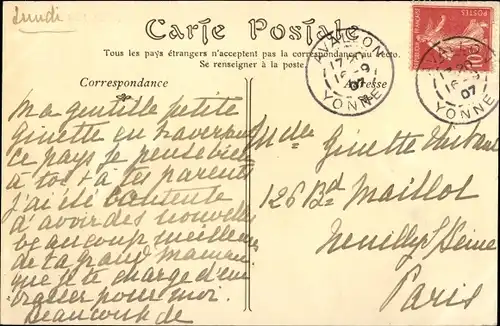 Lundi
Carte Postale
Tous les pays étrangers n'acceptent pas la correspondance au recto.
Se renseigner à la poste.
Correspondance
Adresse
AVALLON
YONNE
17 30
16 - 9
07
10
Ma gentille petite
Ginette en traversant
ce pays je pense bien
à toi & à tes parents
j'ai été contente
d'avoir des nouvelles
beaucoup meilleures
de ta grand maman
que je te charge d'em
brasser pour moi.
beaucoup de
Mlle Ginette
126 Bd Maillot
Neuilly s/Seine
Paris